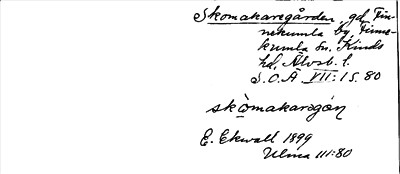 Skomakaregården, gd, Fin-
nekumla by, Finne-
kumla sn, Kinds
hd, Älvsb. l.
S.O.Ä VII:1 s. 80
skòmakaregån
E. Ekwall 1899
Ulma 111:80